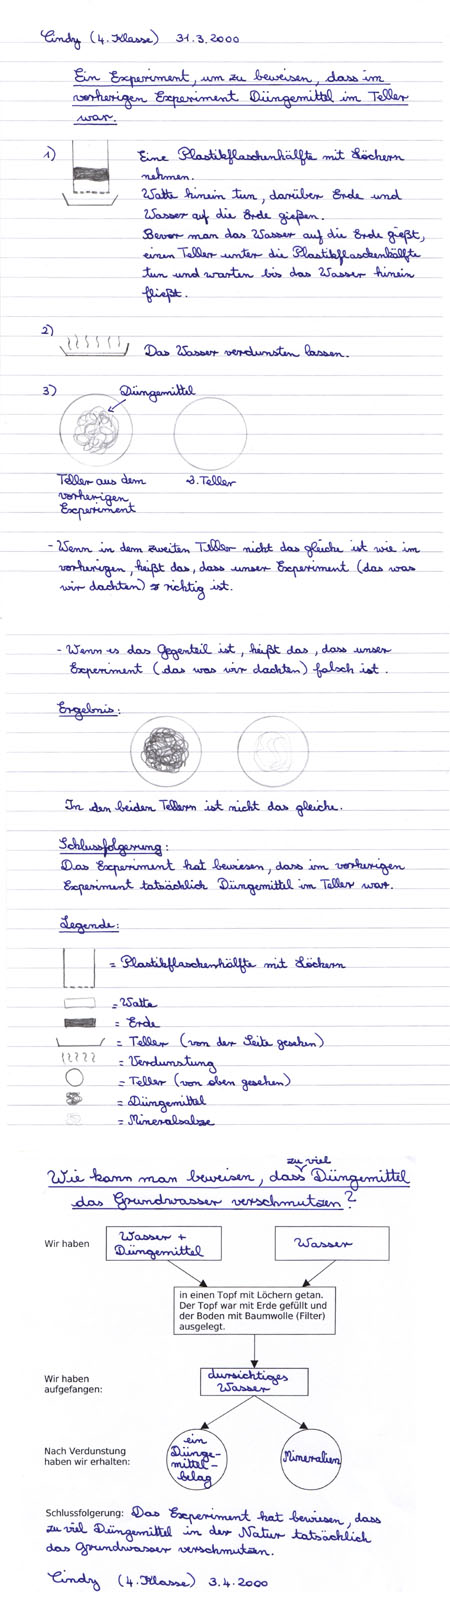 Cindy (4. Klasse) 31.3.2000
Ein Experiment, um zu beweisen, dass im
vorherigen Experiment Düngemittel im Teller
war.
1)
Eine Plastikflaschenhälfte mit Löchern
nehmen.
Watte hinein tun, darüber Erde und
Wasser auf die Erde gießen.
Bevor man das Wasser auf die Erde gießt,
einen Teller unter die Plastikflaschenhälfte
tun und warten bis das Wasser hinein
fließt.
2)
Das Wasser verdunsten lassen.
3)
Düngemittel
Teller aus dem
vorherigen
Experiment
2. Teller
- Wenn in dem zweiten Teller nicht das gleiche ist wie im
vorherigen, heißt das, dass unser Experiment (das was
wir dachten) richtig ist.
- Wenn es das Gegenteil ist, heißt das, dass unser
Experiment (das was wir dachten) falsch ist.
Ergebnis:
In den beiden Tellern ist nicht das gleiche.
Schlussfolgerung:
Das Experiment hat bewiesen, dass im vorherigen
Experiment tatsächlich Düngemittel im Teller war.
Legende:
= Plastikflaschenhälfte mit Löchern
= Watte
= Erde
= Teller (von der Seite gesehen)
= Verdunstung
= Teller (von oben gesehen)
= Düngemittel
= Mineralsalze
Wie kann man beweisen, dass zu viel Düngemittel
das Grundwasser verschmutzen?
Wir haben
Wasser +
Düngemittel
Wasser
in einen Topf mit Löchern getan.
Der Topf war mit Erde gefüllt und
der Boden mit Baumwolle (Filter)
ausgelegt.
Wir haben
aufgefangen:
dursichtiges
Wasser
Nach Verdunstung
haben wir erhalten:
ein
Dünge-
mittel-
belag
Mineralien
Schlussfolgerung: Das Experiment hat bewiesen, dass
zu viel Düngemittel in der Natur tatsächlich
das Grundwasser verschmutzen.
Cindy (4. Klasse) 3.4.2000